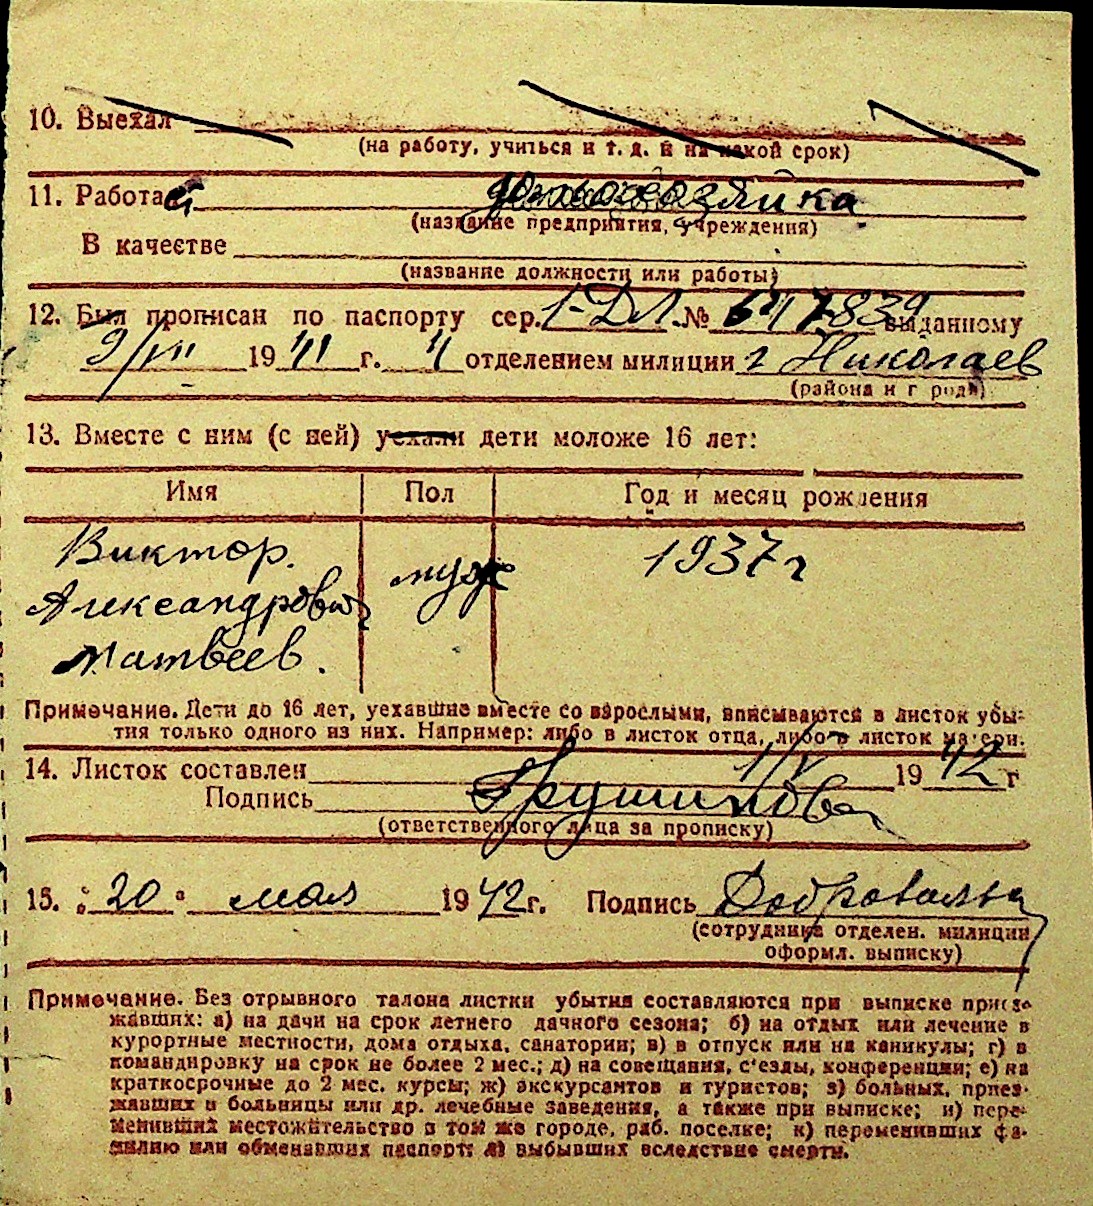 10. Выехал
(на работу, учиться и т. д. и на какой срок)
11. Работа домохозяйка
(название предприятия, учреждения)
В качестве
(название должности или работы)
12. Был прописан по паспорту сер. 1-ДЛ № 647839 выданному
9/VII 1941 г. 4 отделением милиции г Николаев
(района и города)
13. Вместе с ним (с ней) уехали дети моложе 16 лет:
Имя Пол Год и месяц рождения
Виктор. муж 1937 г
Александрович
Матвеев.
Примечание. Дети до 16 лет, уехавшие вместе со взрослыми, вписываются в листок убы-
тия только одного из них. Например: либо в листок отца, либо в листок матери.
14. Листок составлен 1/V 1942 г
Подпись
(ответственного лица за прописку)
15. "20" мая 1942 г. Подпись
(сотрудника отделен. милиции
оформл. выписку)
Примечание. Без отрывного талона листки убытия составляются при выписке приез-
жавших: а) на дачи на срок летнего дачного сезона; б) на отдых или лечение в
курортные местности, дома отдыха, санатории; в) в отпуск или на каникулы; г) в
командировку на срок не более 2 мес.; д) на совещания, с'езды, конференции; е) на
краткосрочные до 2 мес. курсы; ж) экскурсантов и туристов; з) больных, приез-
жавших в больницы или др. лечебные заведения, а также при выписке; и) пере-
менивших местожительство в том же городе, раб. поселке; к) переменивших фа-
милию или обменявших паспорт; л) выбывших вследствие смерти.